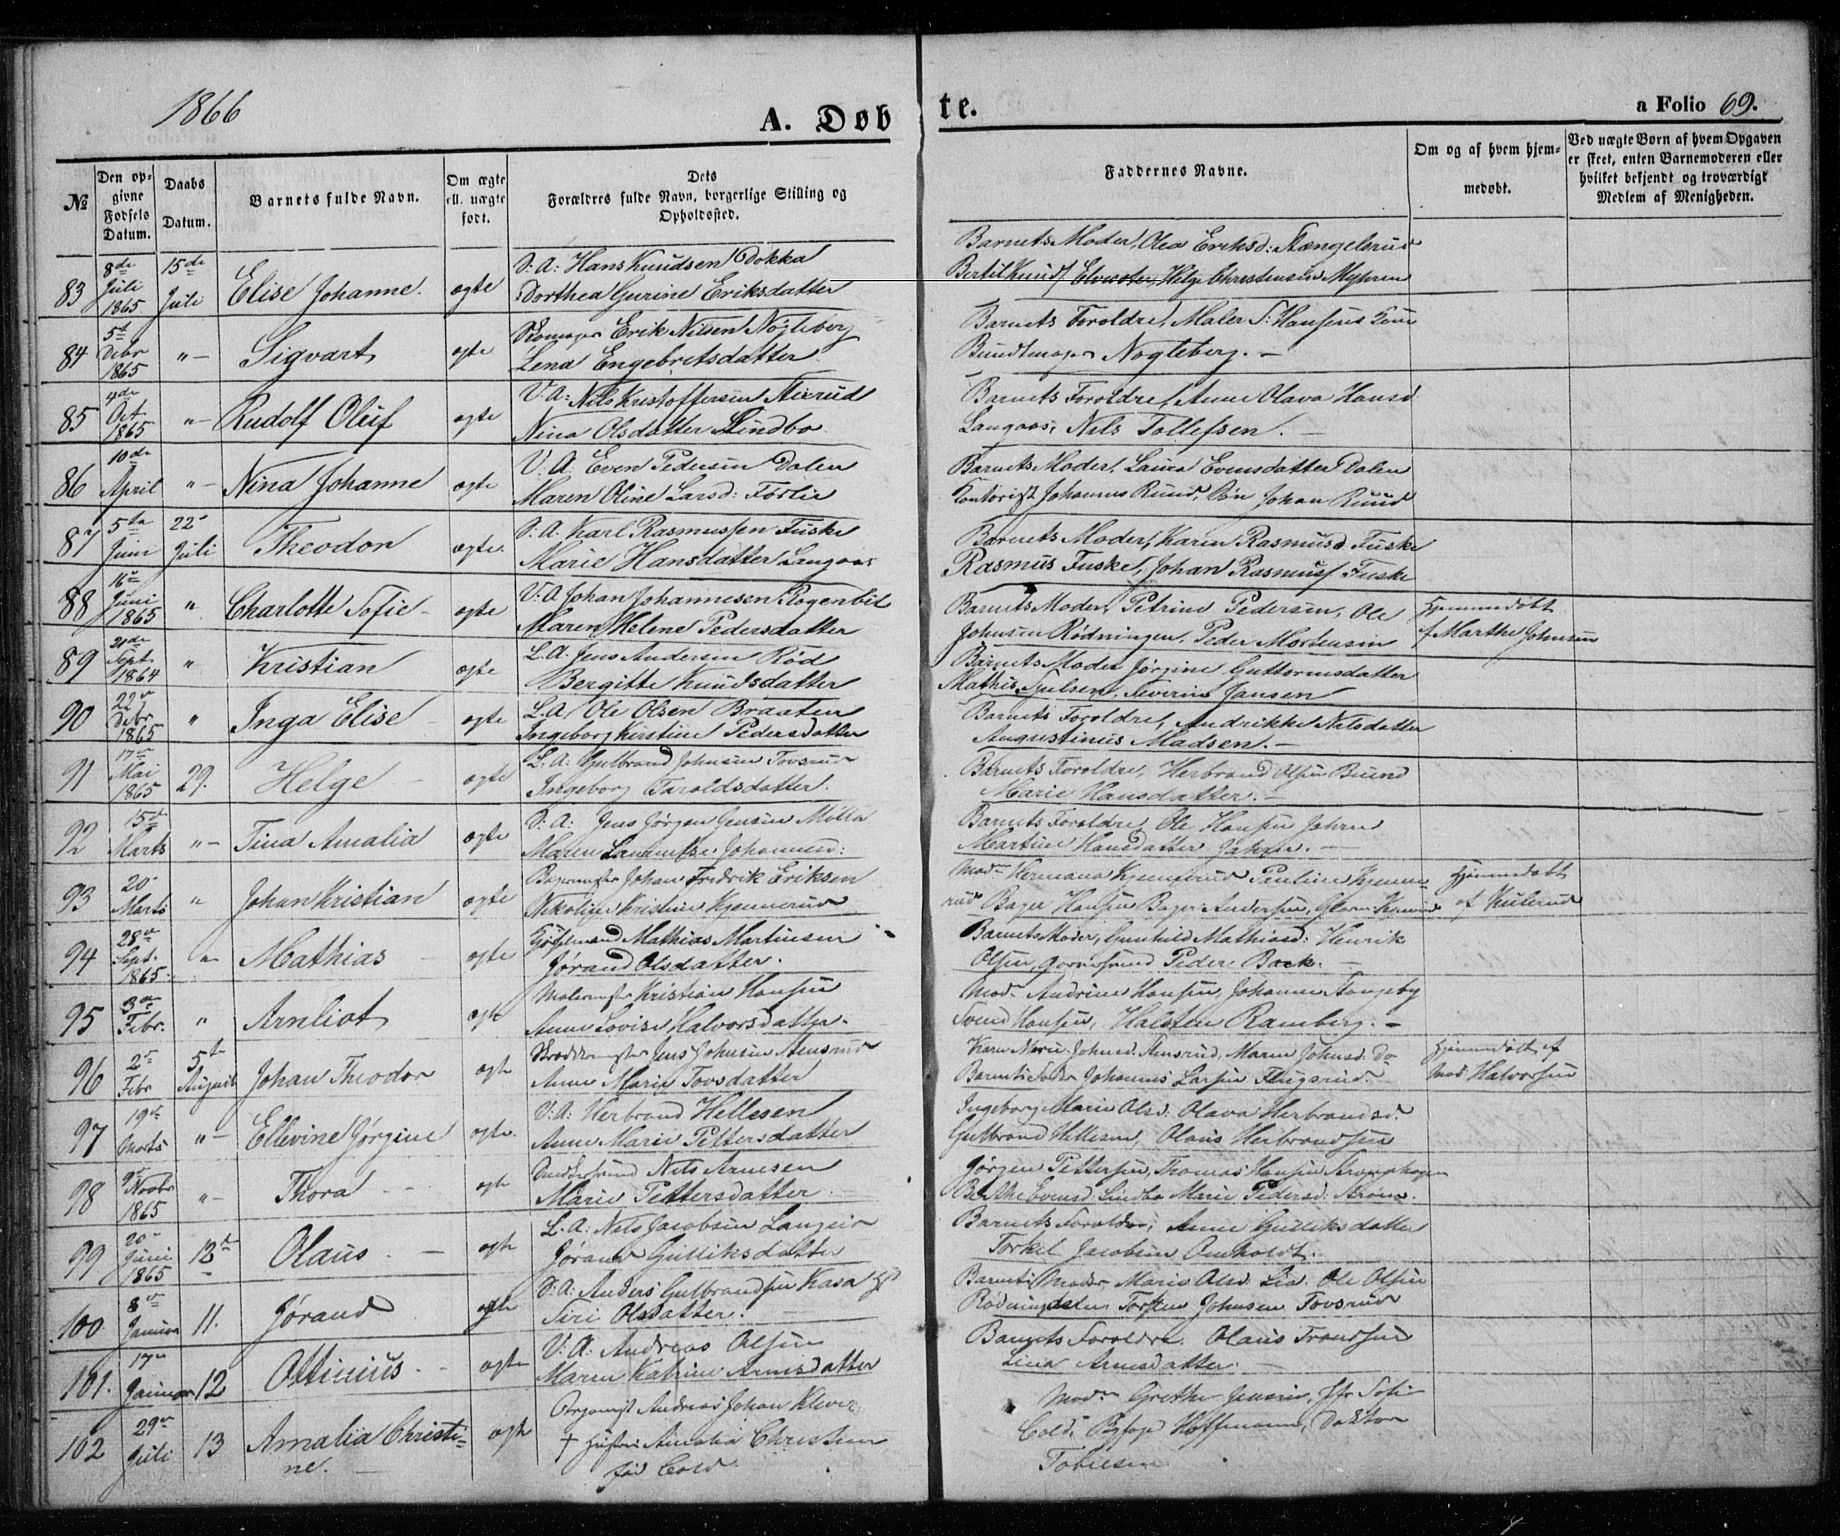 1866
A. Døbte.
a Folio 69.
№
Den opgivne Fødsels Datum.
Daabs Datum.
Barnets fulde Navn.
Om ægte ell. uægte født.
Dets Forældres fulde Navn, borgerlige Stilling og Opholdssted.
Faddernes Navne.
Om og af hvem hjemmedøbt.
Ved uægte Børn af hvem Opgaven er skeet, enten Barnemoderen eller hvilket bekjendt og troværdigt Medlem af Menigheden.
83 8de Juli 1865 15de Juli Elise Johanne. ægte
D: A: Hans Knudsen Dokka
Dorthea Gurine Eriksdatter
Barnets Moder, Olea Eriksd: Stængelsrud
Bertil Knuds Helge Christensen Myhren
84 5t Debr 1865 "- Sigvart ægte
Skomager Erik Nilsen Nøgleberg
Lena Engebretsdatter
Barnets Foroldre, Maler S: Hansens Kone
Bundtmager Nøgleberg. -
85 4de Oct 1865 "- Rudolf Oluf ægte
V: A: Nils Kristoffersen
Nina Olsdatter Lindbo
Barnets Foroldre, Anne Olava Hansd
Langaas, Nils Tollefsen. -
86 10de April "- Nina Johanne ægte
V: A. Even Pedersen Dalen
Maren Oline Larsd: Førlie
Barnets Moder, Laura Evensdatter Dalen
Kontorist Johannes Ruud, Søn Johan Ruud
87 5te Juni 22 Juli Theodor ægte.
D. A. Karl Rasmussen Fuske
Marie Hansdatter Langaas
Barnets Moder, Karen Rasmusd Fuske
Rasmus Fuske, Johan Rasmuss Fuske
88 16 Juni 1865 " Charlotte Sofie - ægte
V: A Johan Johannesen
Maren Helene Pedersdatter
Barnets Moder, Petrine Pedersen, Ole
Johnsen Rødningen, Peder Mortensen
Hjemmedøbt
af Marthe Johnsen
89 21de Sept 1864 " Kristian ægte
L. A. Jens Andersen Rød
Bergitte Knudsdatter
Barnets Moder Jørgine Guttormsdatter
Mathis Severin Jansen
90 22 Debr 1865 " Inga Elise - ægte
L. A. Ole Olsen Braaten
Ingeborg Kerstine Pedersdatter
Barnets Foroldre, Andrikke Nilsdatter
Augustinus Madsen. -
91 17 Mai 1865 29. Helge - ægte
L. A: Gulbrand Johnsen Tovsrud
Ingeborg Haroldsdatter.
Barnets Foroldre, Herbrand Olsen
Marie Hansdatter. -
92 15de Marts "- Tina Amalia ægte
D: A: Jens Jørgen Jensen
Maren Johannesd:
Barnets Foroldre, Ole Hansen
Martine Hansdatter
93 20 Marts " Johan Kristian ægte
Johan Fredrik Eriksen
Nikoline Kristine Kjennerud
Madm Hermana Kjennerud Pauline Kjenne-
rud Bager Hansen Bager Andersen,
Hjemmedøbt
af
94 28 Sept. 1865 "- Mathias - ægte
Mathias Martinsen
Jørand Olsdatter.
Barnets Moder, Gunhild Mathiasd: Henrik
Olsen, Peder Back. -
95 3de Febr. " Arnliot ægte
Malermester Kristian Hansen
Anne Lovise Halvorsdatter.
Madm Andrine Hansen, Johanne
Svend Hansen, Halsten Ramberg. -
96 2 Febr 5te August Johan Theodor ægte
Skreddermester Jens Johnsen
Anne Maria Tovsdatter
Johnsd: Maren Johnsd: Do
Barnets Fader Johannes Larsen
Hjemmedøbt af
Mad Halvorsen
97 19de Marts "- Ellevine Jørgine ægte.
V: A: Herbrand Hellesen
Anne Marie Pettersdatter
Ingeborg Marie Olsd. Olava Herbrandsd.
Gulbrand Hellesen, Olaus Herbrandsen
98 9 Novbr 1865 "- Thora - - ægte
Nils Arnesen
Marie Pettersdatter.
Jørgen Pettersen, Thomas Hansen
Evensd: Lindbo Marie Pedersd:
99 20 Juni 1865 12te Olaus. - ægte
L. A: Nils Jacobsen
Jørand Gulliksdatter
Barnets Foroldre; Anne Gulliksdatter
Torkel Jacobsen Omholdt.
100. 8 Januar 11. Jørand ægte
D: A: Anders Gulbrandsen Kasa
Siri Olsdatter. -
Barnets Moder Marie Olsd. Lia. Ole Olsen
Torsten Johnsen Tovsrud
101. 17 Januar 12 Ottinius. - ægte
V: A: Andreas Olsen
Maren Katrine Arnesdatter
Barnets Foroldre. Olaus Trondsen
Lina Arnesdatter. -
102 29 Juli 13 Amalia Christine. - ægte
Organist Andreas Johan Klever
+ Hustru Amalia Christine
fød Cold
Madm Grethe Jensen, Jfr Sofie
Cold, Byfoge Hoffmann, Doktor
Tobiesen